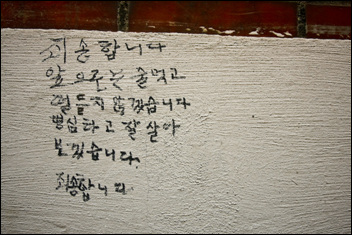 죄손합니다
앞으로는 술먹고
떠들지 않겠습니다
명심하고 잘 살아
보겠습니다.
죄송합니다